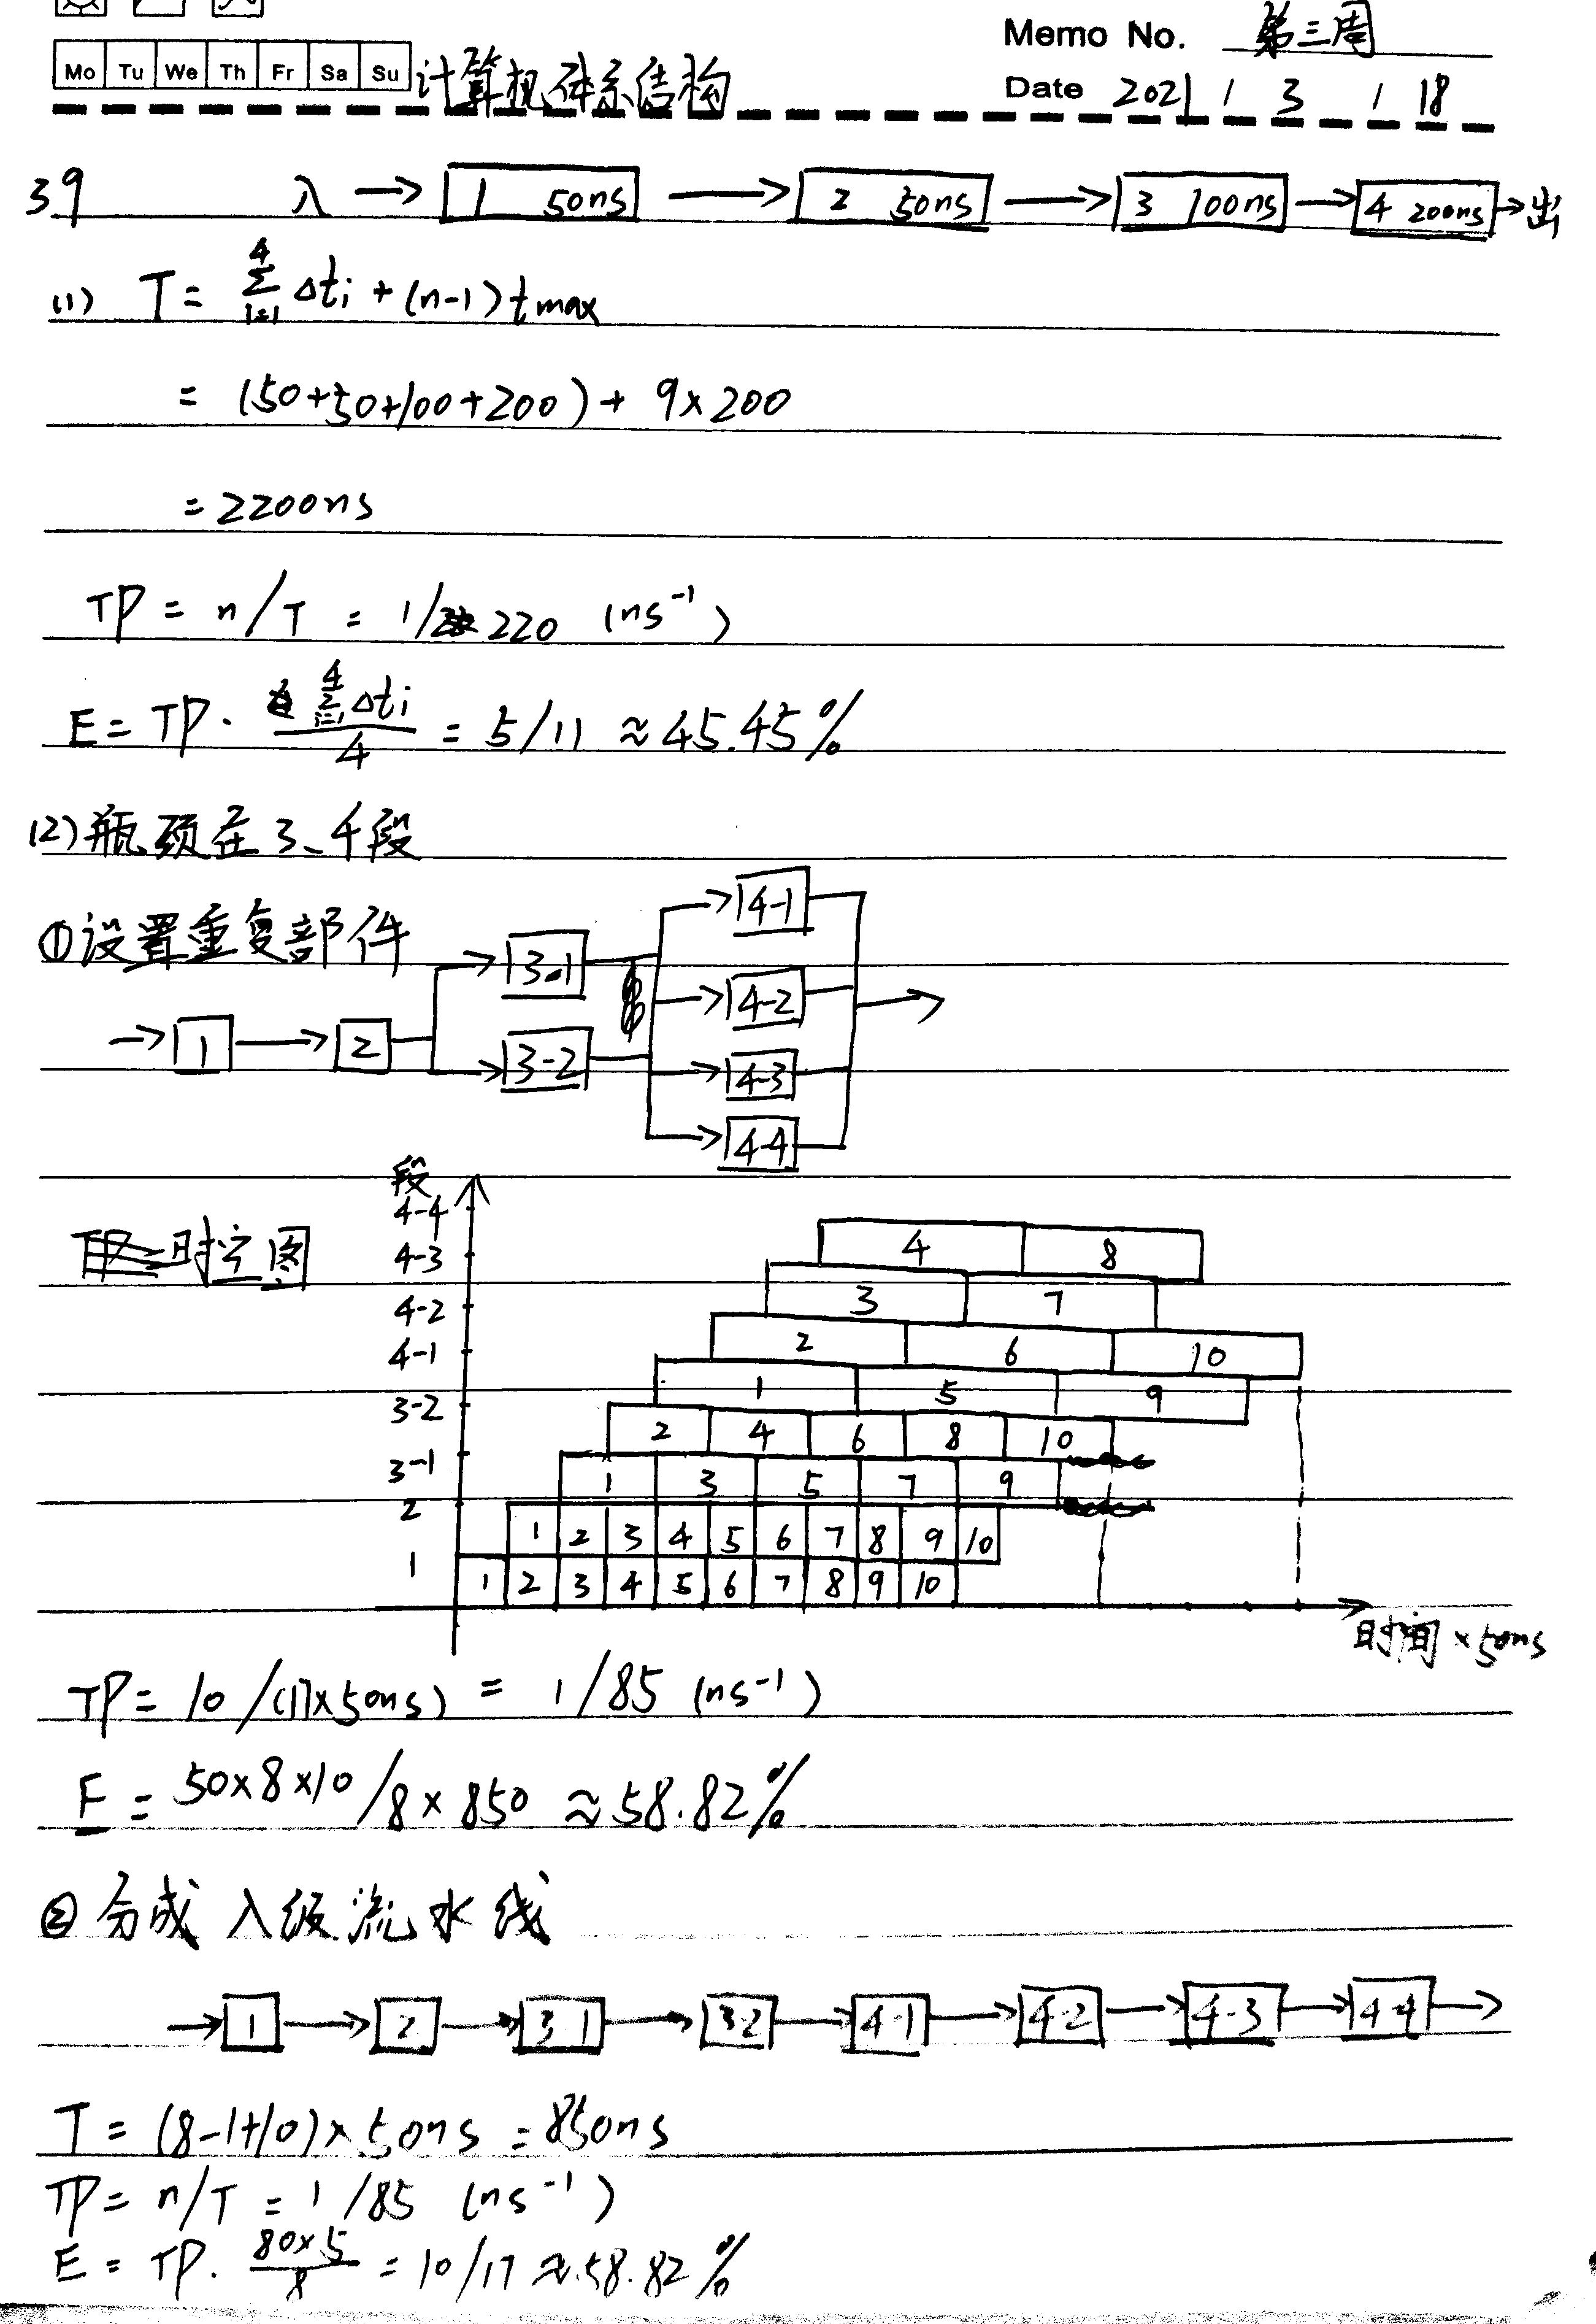 Memo No. 第三周
Mo Tu We Th Fr Sa Su 计算机体系结构
Date 2021 / 3 / 18
3.9 入 → 1 50ns → 2 50ns → 3 100ns → 4 200ns → 出
(1) T = Σ_{i=1}^{4} Δti + (n-1) tmax
= (50+50+100+200) + 9×200
= 2200ns
TP = n/T = 1/220 (ns⁻¹)
E = TP · Σ_{i=1}^{4} Δti / 4 = 5/11 ≈ 45.45%
(2) 瓶颈在 3、4段
①设置重复部件
→ 1 → 2 → 3-1 3-2 → 4-1 4-2 4-3 4-4 →
时空图
段
4-4 4 8
4-3 3 7
4-2 2 6 10
4-1 1 5 9
3-2 2 4 6 8 10
3-1 1 3 5 7 9
2 1 2 3 4 5 6 7 8 9 10
1 1 2 3 4 5 6 7 8 9 10
时间 ×50ns
TP = 10 /(17×50ns) = 1/85 (ns⁻¹)
E = 50×8×10 / 8×850 ≈ 58.82%
② 分成 八级 流水线
→ 1 → 2 → 3-1 → 3-2 → 4-1 → 4-2 → 4-3 → 4-4 →
T = (8-1+10)×50ns = 850ns
TP = n/T = 1/85 (ns⁻¹)
E = TP · 80×5 / 8 = 10/17 ≈ 58.82%